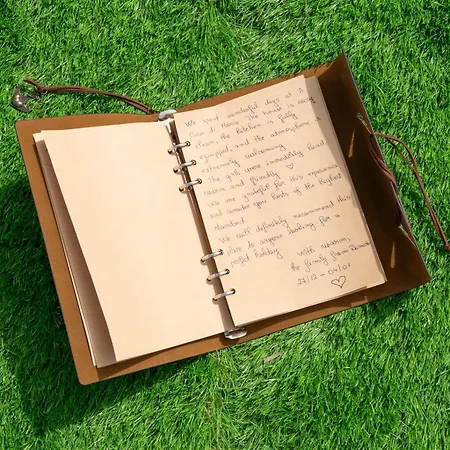 We spent wonderful days at A
Casa di Nonna. The house is very
clean, the kitchen is fully
equipped, and the atmosphere is
extremely welcoming.
The girls were incredibly kind,
warm and friendly ♡
We are grateful for this experience
and consider your hosts of the highest
standard.
We will definitely recommend this
place to anyone looking for a
perfect holiday.
With warmth,
the family from
27/12 - 04/01
♡